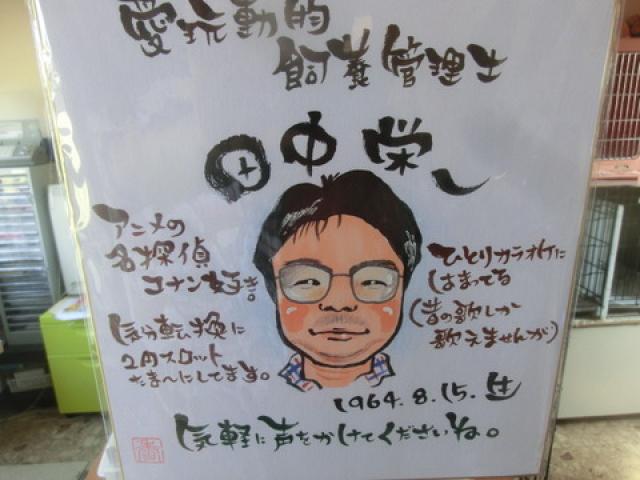 愛玩動物
飼養管理士
田中 栄し
アニメの
名探偵
コナン好き。
気分転換に
2円スロット
たま〜にしてます。
ひとりカラオケに
はまってる
(昔の歌しか
歌えませんが)
1964.8.15.生
気軽に声をかけてくださいね。